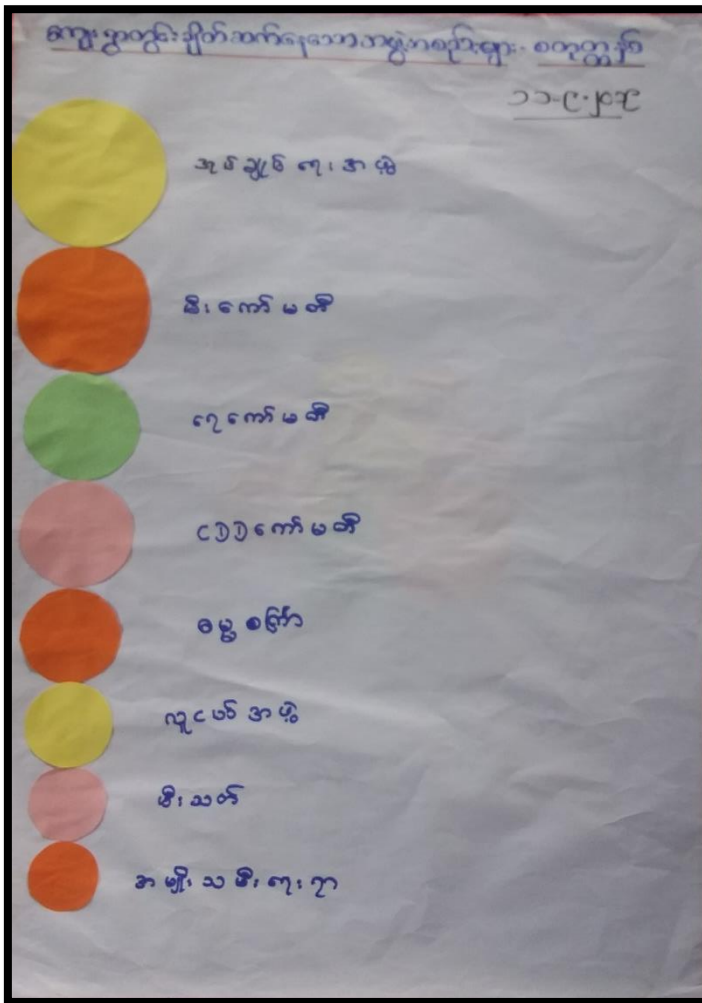 ကျေးရွာတွင်းချိတ်ဆက်နေသောအဖွဲ့အစည်းများ - စတုတ္ထနှစ်
၁၁-၉-၂၀၁၉
အုပ်ချုပ်ရေးအဖွဲ့
မီးကော်မတီ
ရေကော်မတီ
CDDကော်မတီ
ဓမ္မစကြာ
လူငယ်အဖွဲ့
မီးသတ်
အမျိုးသမီးရေးရာ